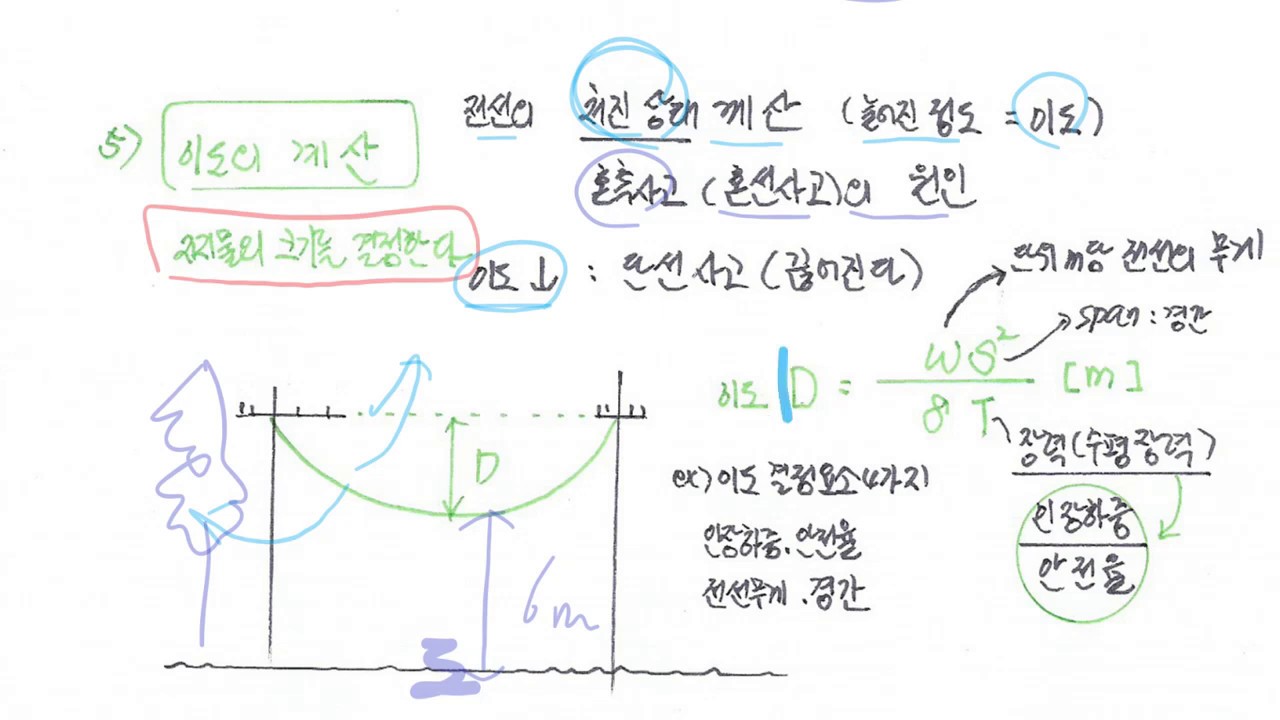 5) 이도의 계산
전선의 처진 상태 계산 (늘어진 정도 = 이도)
혼촉사고 (혼선사고)의 원인
지지물의 크기를 결정한다
이도 ↓ : 단선사고 (끊어진다)
단위 m당 전선의 무게
span : 경간
이도 D = WS² / 8T [m]
장력 (수평장력)
인장하중
안전율
D
ex) 이도 결정요소 4가지
인장하중, 안전율
전선무게, 경간
6m
도